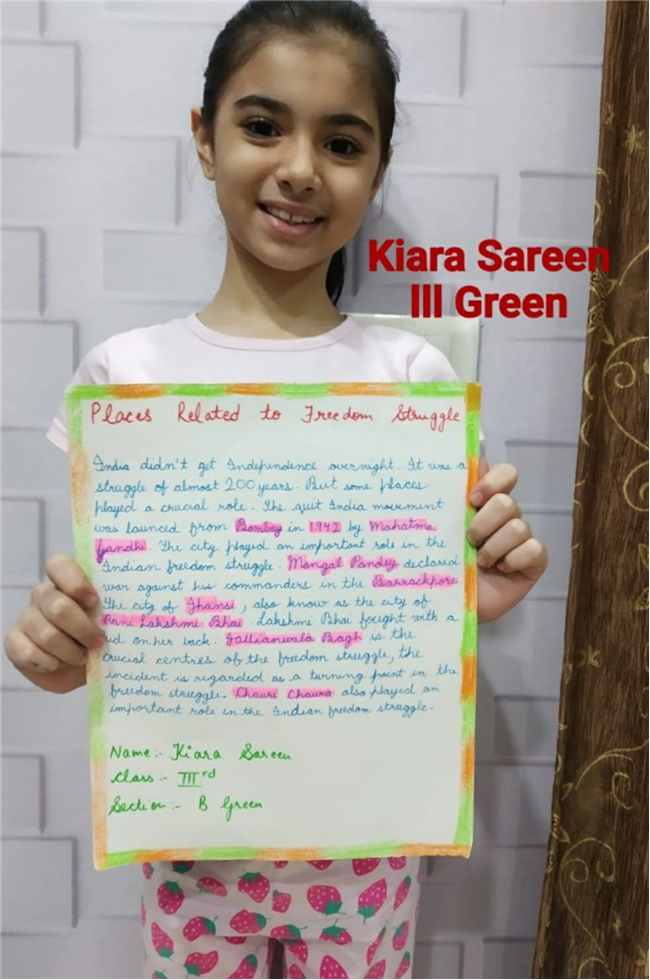 Kiara Sareen
III Green
Places Related to Freedom Struggle
India didn't get Independence overnight. It was a
struggle of almost 200 years. But some places
played a crucial role. The quit India movement
was launced from Bombay in 1942 by Mahatma
Gandhi. The city played an important role in the
Indian freedom struggle. Mangal Pandey declared
war against his commanders in the Barrackpore
The city of Jhansi, also know as the city of
Rani Lakshmi Bhai. Lakshmi Bhai fought with a
kid on her back. Jallianwala Bagh is the
crucial centres of the freedom struggle, the
incident is regarded as a turning point in the
freedom struggle. Chauri Chaura also played an
important role in the Indian freedom struggle.
Name:- Kiara Sareen
Class:- III rd
Section:- B Green